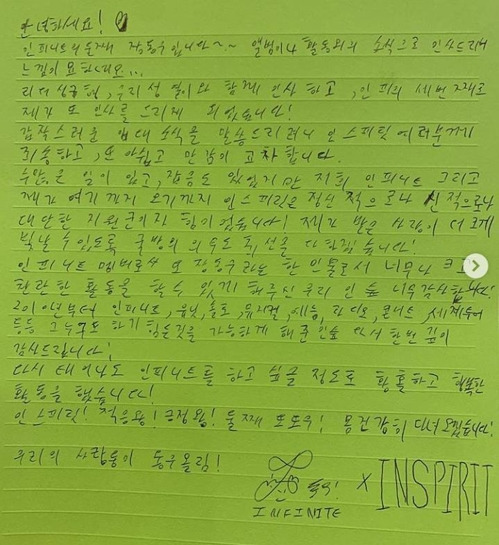 안녕하세요!
인피니트의 둘째 장동우입니다~~ 앨범이나 활동외의 소식으로 인사드리니
느낌이 묘하네요...
리더 성규형, 우리 성열이와 함께 인사하고, 인피의 세번째로
제가 또 인사를 드리게 되었습니다!
갑작스러운 입대 소식을 말씀드리려니 인스피릿 여러분께
죄송하고, 또 아쉽고 만감이 교차합니다.
수많은 일이 있고, 잡음도 있었지만 저희 인피니트 그리고
제가 여기까지 오기까지 인스피릿은 정신적으로나 심적으로나
대단한 지원군이자 힘이었습니다! 제가 받은 사랑이 더 크게
빛날 수 있도록 국방의 의무도 최선을 다하겠습니다!
인피니트 멤버로서 또 장동우라는 한 인물로서 너무나 크고
찬란한 활동을 할 수 있게 해주신 우리 인숲 너무 감사합니다!
2010년부터 인피니트, 유닛, 솔로, 뮤지컬, 예능, 라디오, 콘서트, 세계투어
등등 그 누구도 하기 힘든것을 가능하게 해준 인숲 다시 한번 깊이
감사드립니다!
다시 태어나도 인피니트를 하고 싶을 정도로 황홀하고 행복한
활동을 했습니다!
인스피릿! 적응왕! 긍정왕! 둘째 또또우! 몸 건강히 다녀오겠습니다!
우리의 사랑둥이 동우올림!
INFINITE X INSPIRIT